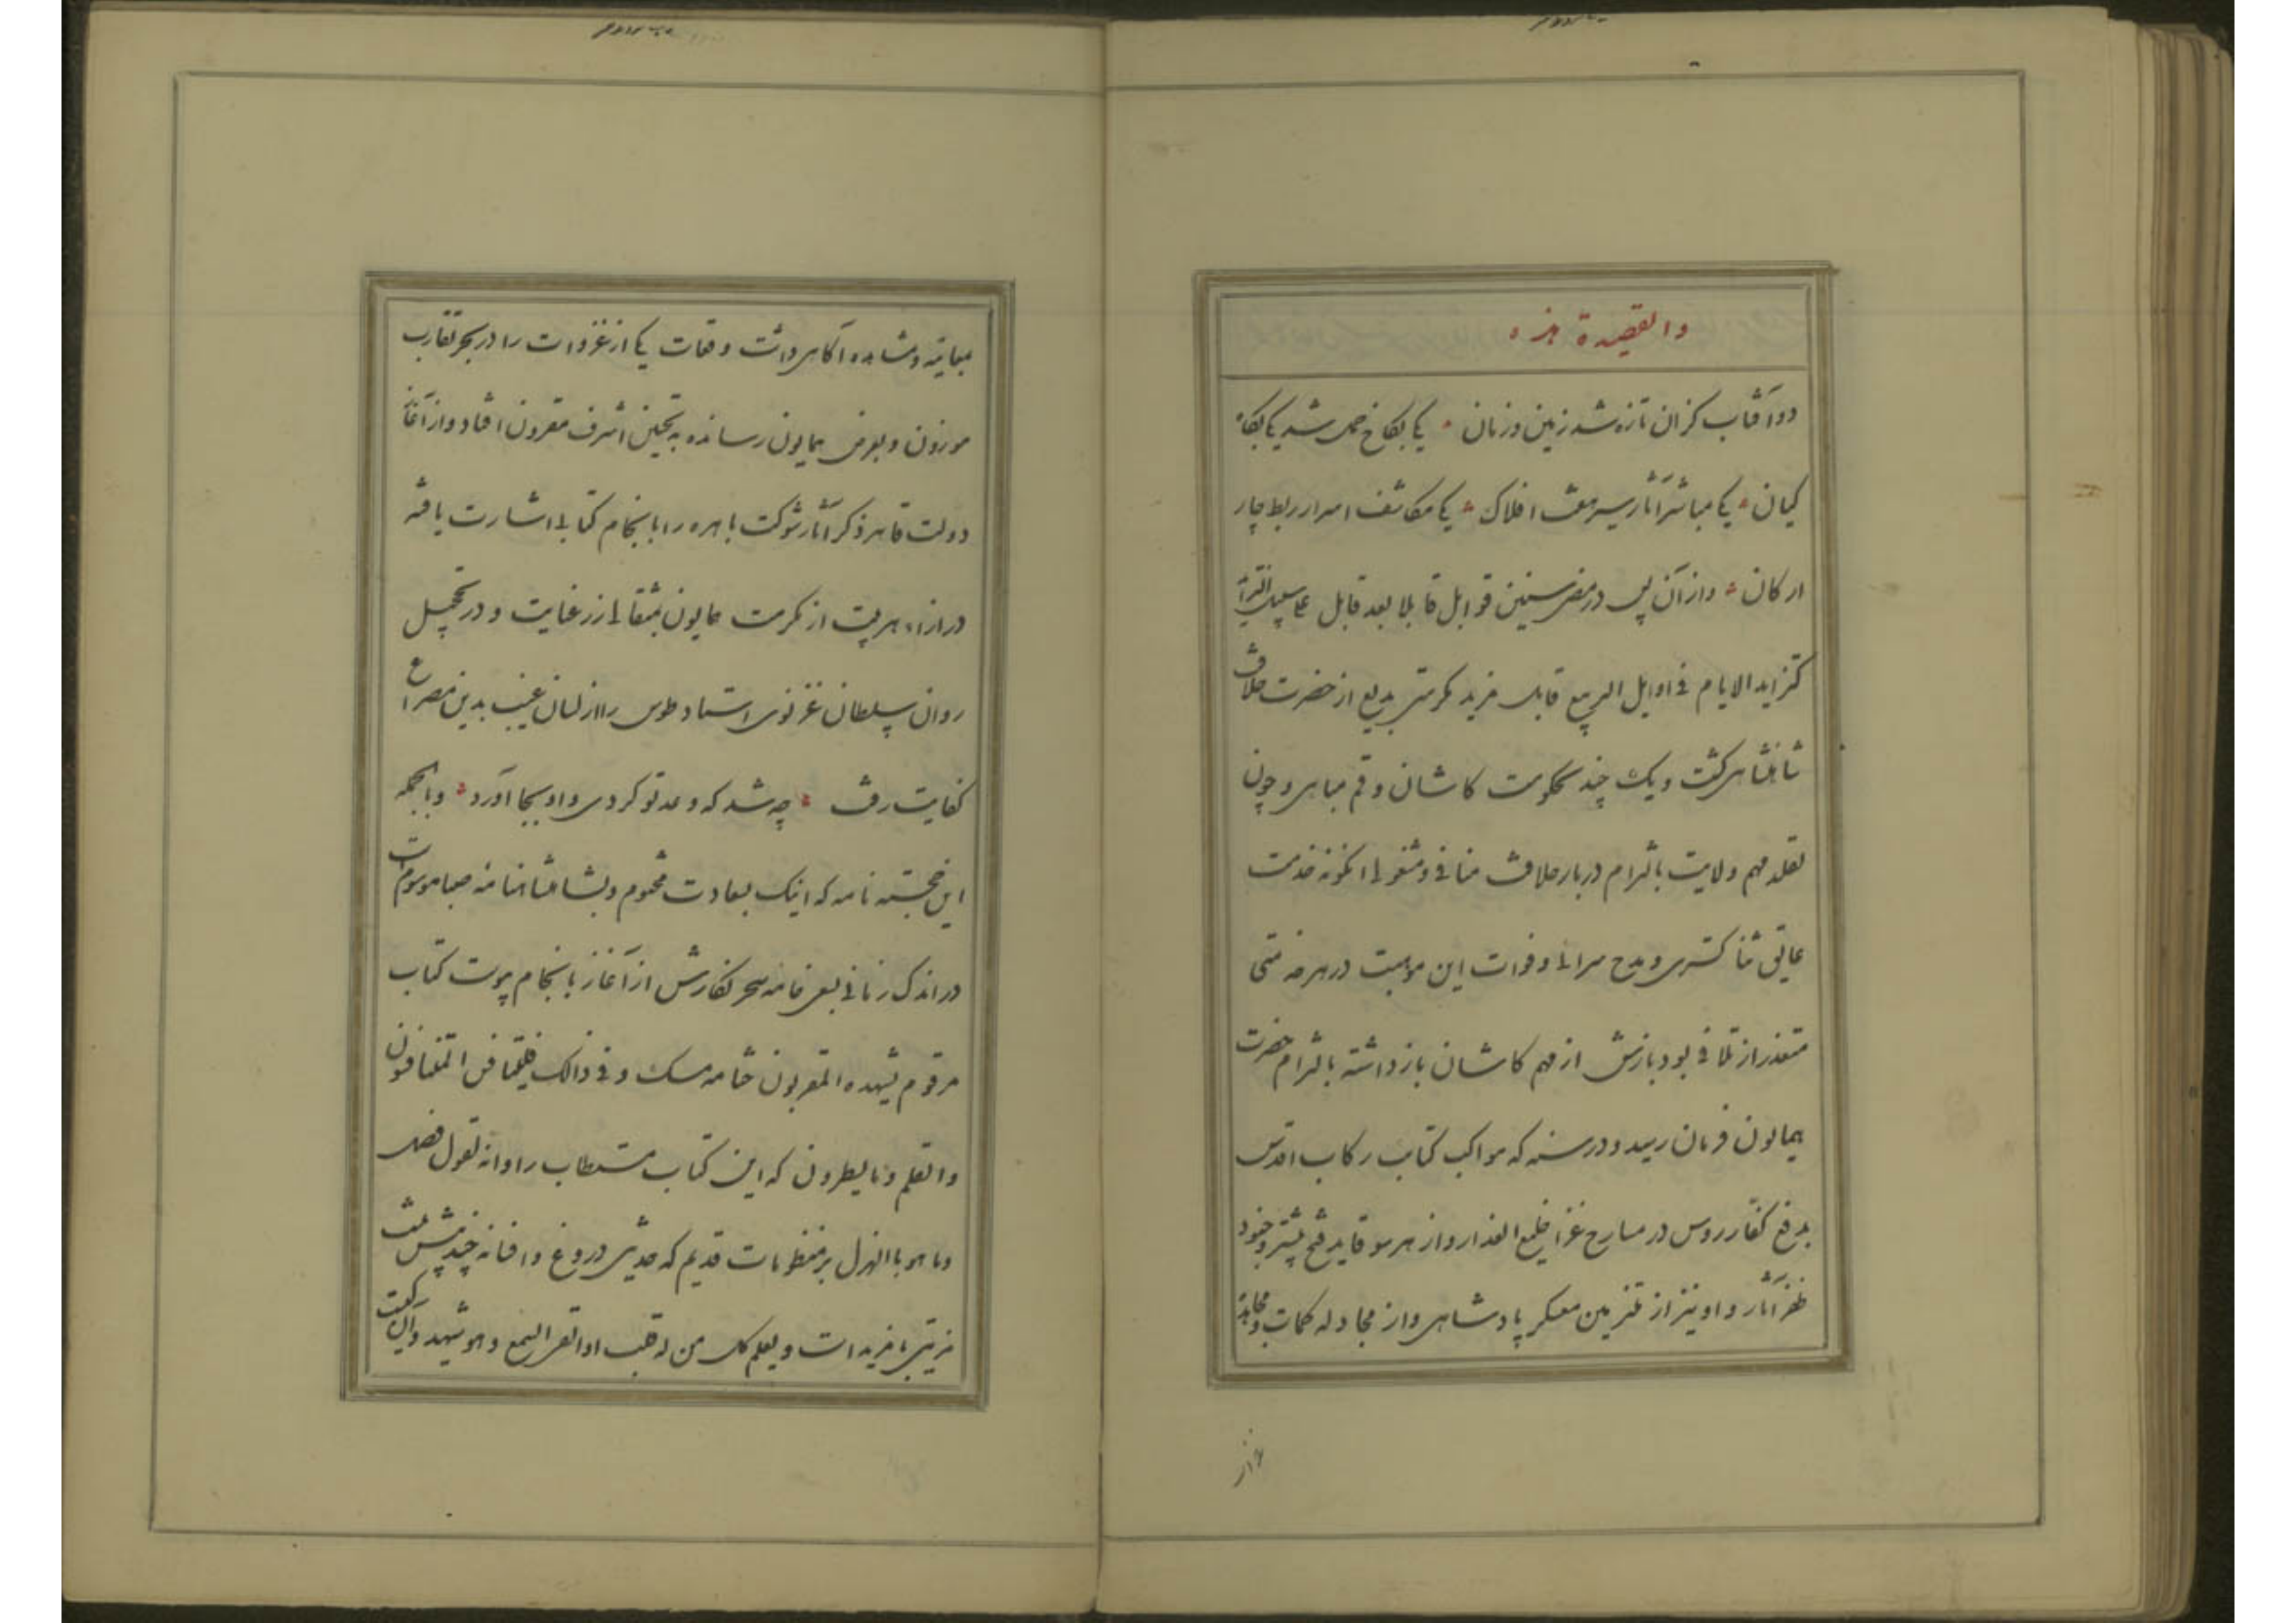 والقصیدة هذه
دو آفتاب کزان تازه شد زمین و زمان یکی بکاخ حمل شد یکی بکاه
کیان یکی مباشر آثار سیر هفت افلاک یکی مکاشف اسرار ربط چار
ارکان و از آن پس در مضی سنین قوابل قابلا بعد قابل علی سبیل التزاید
کتزاید الایام فی اوایل الربیع قابل مزید مکرمتی بدیع از حضرت خلافت
شاهنشاهی گشت و یک چند بحکومت کاشان و قم مباهی و چون
تقلد مهم ولایت بالتزام دربار خلافت منافی و مشغولی اینگونه خدمت
عایق ثنا گستری و مدح سرائی و فوات این موهبت در هر ضمنی
متعذر از تلافی بود بازش از مهم کاشان باز داشته بالتزام حضرت
همایون فرمان رسید و در سنه که مواکب کتایب رکاب اقدس
بدفع کفار روس در مسارح غزا خلیع العذار و از هر سو قاید فتح پیشرو جنود
ظفر آثار و او نیز از ملتزمین معسکر پادشاهی و از مجادله کمات و مجاهدة
بمعاینه و مشاهده آگاهی داشت وقعات یکی از غزوات را در بحر تقارب
موزون و بعرض همایون رسانده به تحسین اشرف مقرون افتاد و از آغاز
دولت قاهره ذکر آثار شوکت باهره را بانجام کتابی اشارت یافته
در ازاء هر بیت از مکرمت همایون بمثقالی زر عنایت و در تخجیل
روان سلطان غزنوی استاد طوس را از لسان غیب بدین مصراع
کفایت رفت چه شد که وعده تو کردی و او بجا آورد و بالجمله
این خجسته نامه که اینک بسعادت مختوم و بشاهنشاهنامه صبا موسوم است
در اندک زمانی بسعی خامه سحر نگارش از آغاز بانجام پیوست کتاب
مرقوم یشهده المقربون ختامه مسک و فی ذالک فلیتنافس المتنافسون
والقلم و ما یسطرون که این کتاب مستطاب را و انه لقول فصل
وما هو بالهزل بر منظومات قدیم که حدیثی دروغ و افسانه چند بیش نیست
مزیتی با مزید است و یعلم کل من له قلب او القی السمع و هو شهید و آن
از